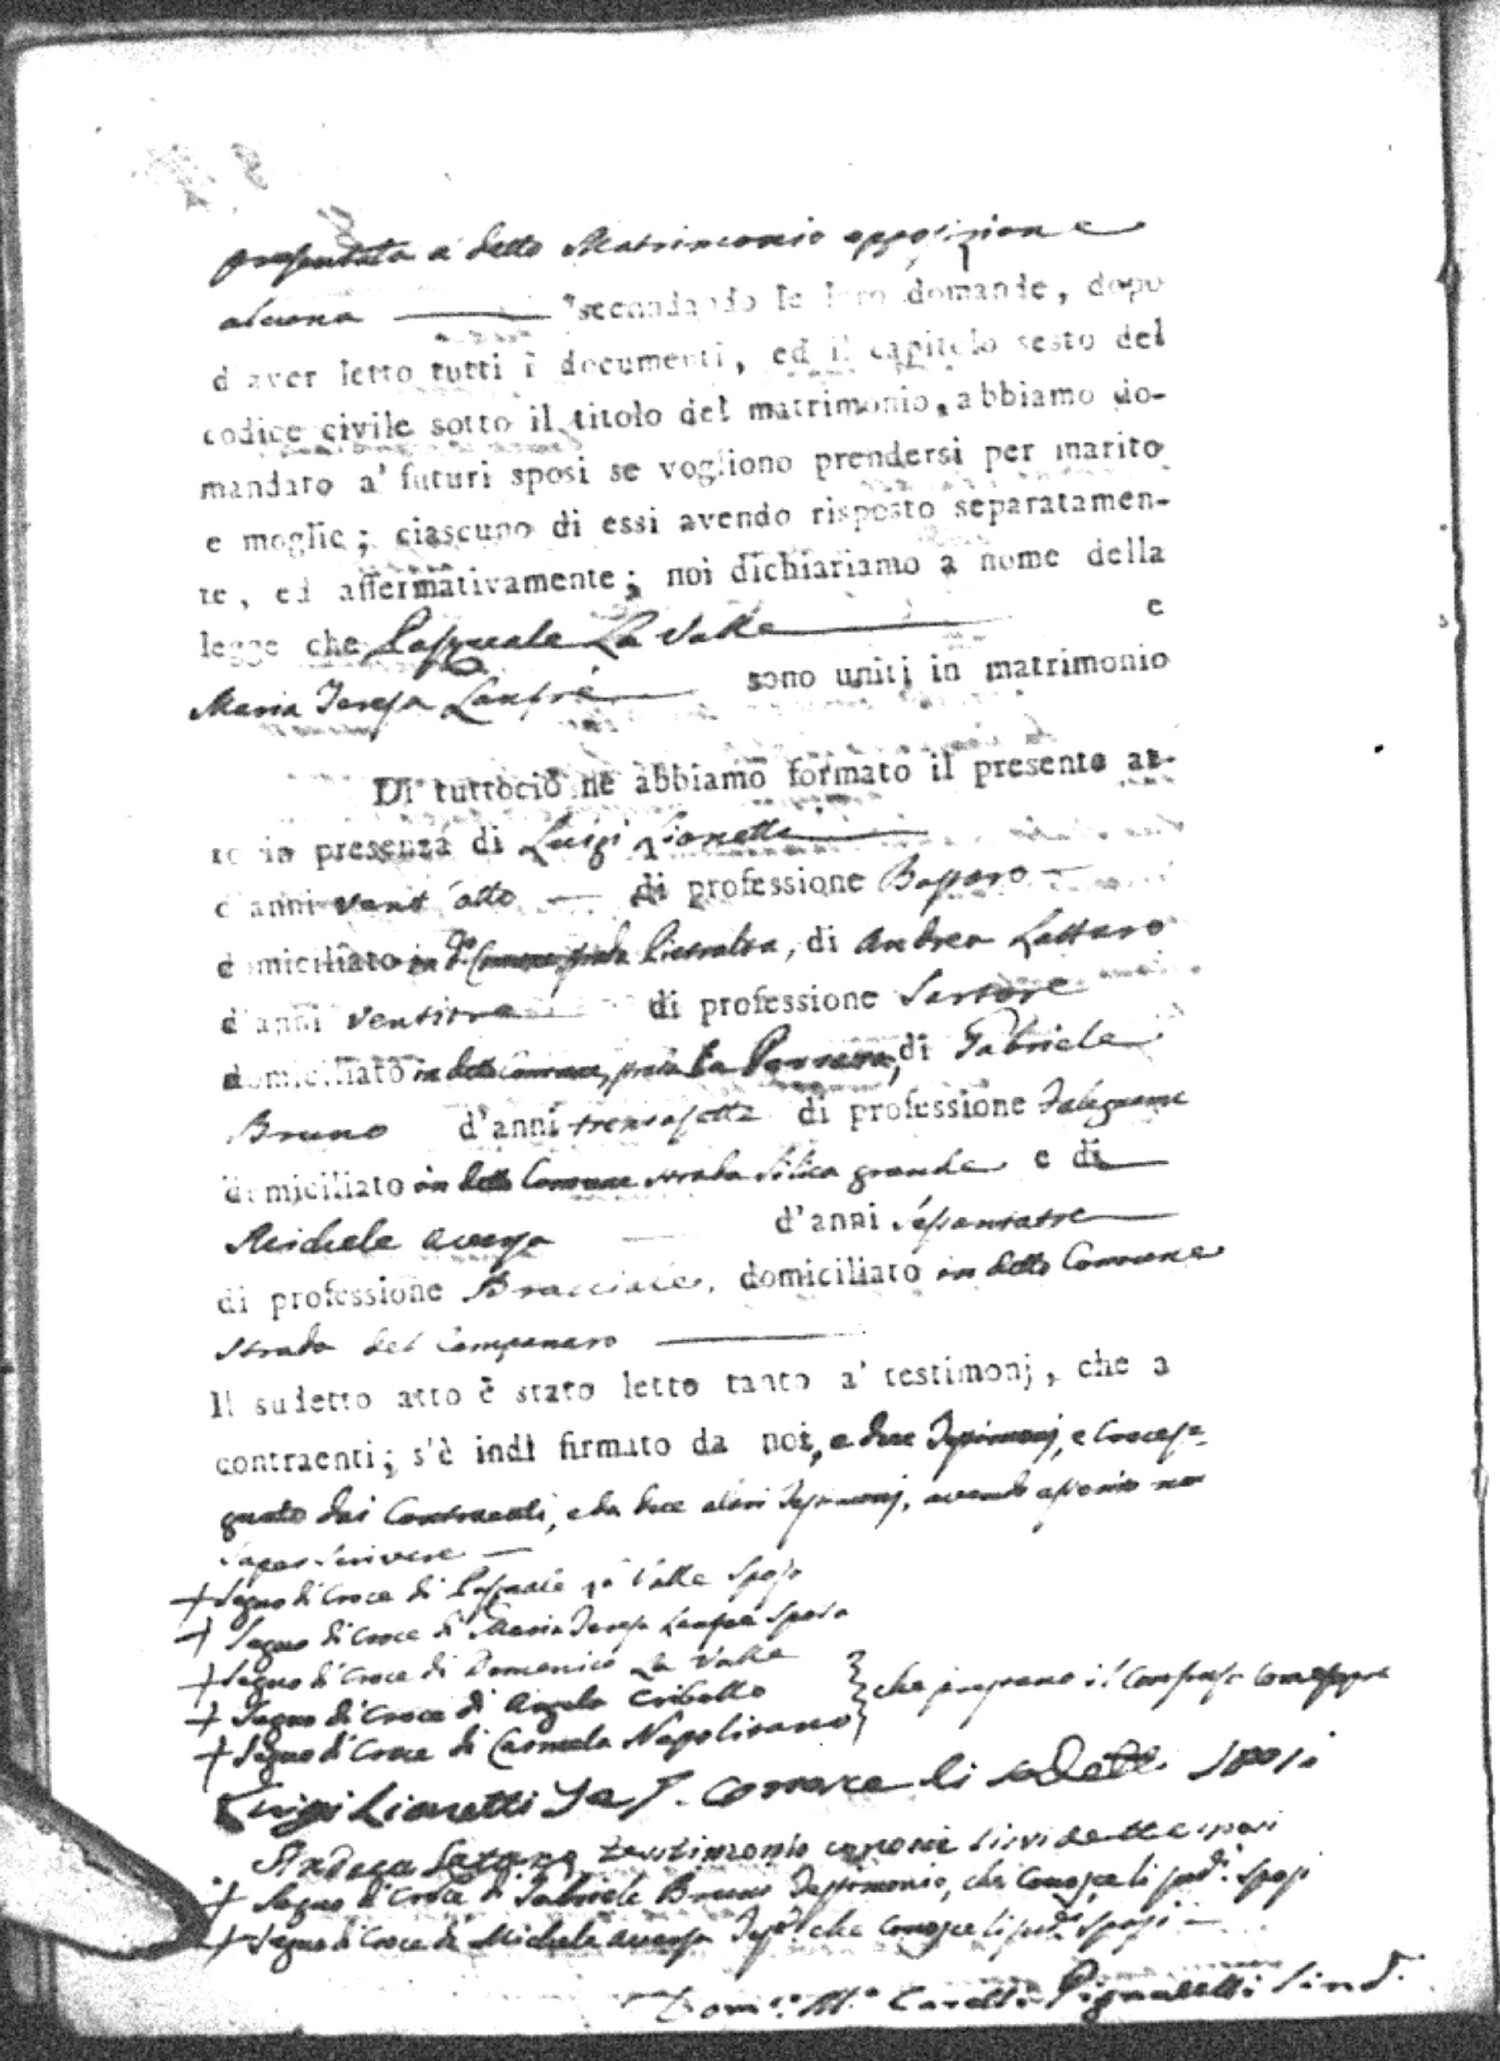 presentata a detto Matrimonio opposizione
alcuna secondando le loro domande, dopo
d aver letto tutti i documenti, ed il capitolo sesto del
codice civile sotto il titolo del matrimonio, abbiamo do-
mandato a' futuri sposi se vogliono prendersi per marito
e moglie; ciascuno di essi avendo risposto separatamen-
te, ed affermativamente; noi dichiariamo a nome della
legge che Pasquale La Valle e
Maria Teresa Lanfrè sono uniti in matrimonio
Di tuttociò ne abbiamo formato il presente at-
to in presenza di Luigi Lionetti
d'anni vent'otto di professione
domiciliato in d.o Comune strada Pietralta, di Andrea Lattaro
d'anni ventitre di professione Sartore
domiciliato in detto Comune, strada La, di Gabriele
Bruno d'anni trentasette di professione Falegname
domiciliato in detto Comune strada Silica grande e di
Michele Aversa d'anni sessantatre
di professione Bracciale, domiciliato in detto Comune
strada del Campanaro
Il sudetto atto è stato letto tanto a' testimonj, che a
contraenti; s'è indi firmato da noi, e due Testimonj, e Crocese-
gnato dai Contraenti, e da due altri Testimonj, avendo asserito non
saper scrivere
+ Segno di Croce di Pasquale La Valle Sposo
+ Segno di Croce di Maria Teresa Lanfrè Sposa
+ Segno di Croce di Domenico La Valle
+ Segno di Croce di Angela Cribello } che prestano il Consenso
+ Segno di Croce di Carmela Napolitano
Luigi Lionetti T. conosce li sudetti sposi
Andrea testimonio sposi
+ Segno di Croce di Gabriele Bruno Testimonio, che Conosce li sud.i Sposi
+ Segno di Croce di Michele Aversa Test.o che Conosce li sud.i Sposi
Dom.co M.a Carelli Pignatelli Sind.